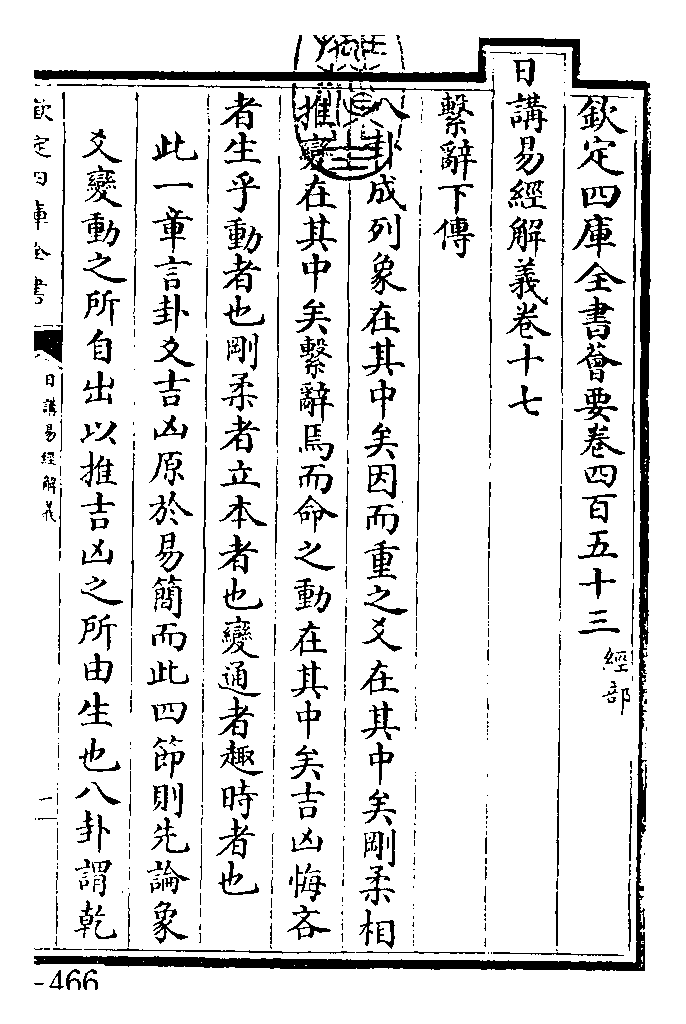 欽定四庫全書薈要卷四百五十三
經部
日講易經解義卷十七
繫辭下傳
八卦成列象在其中矣因而重之爻在其中矣剛柔相
推變在其中矣繫辭焉而命之動在其中矣吉凶悔吝
者生乎動者也剛柔者立本者也變通者趣時者也
此一章言卦爻吉凶原於易簡而此四節則先論象
爻變動之所自出以推吉凶之所由生也八卦謂乾
欽定四庫全書
日講易經解義
-466